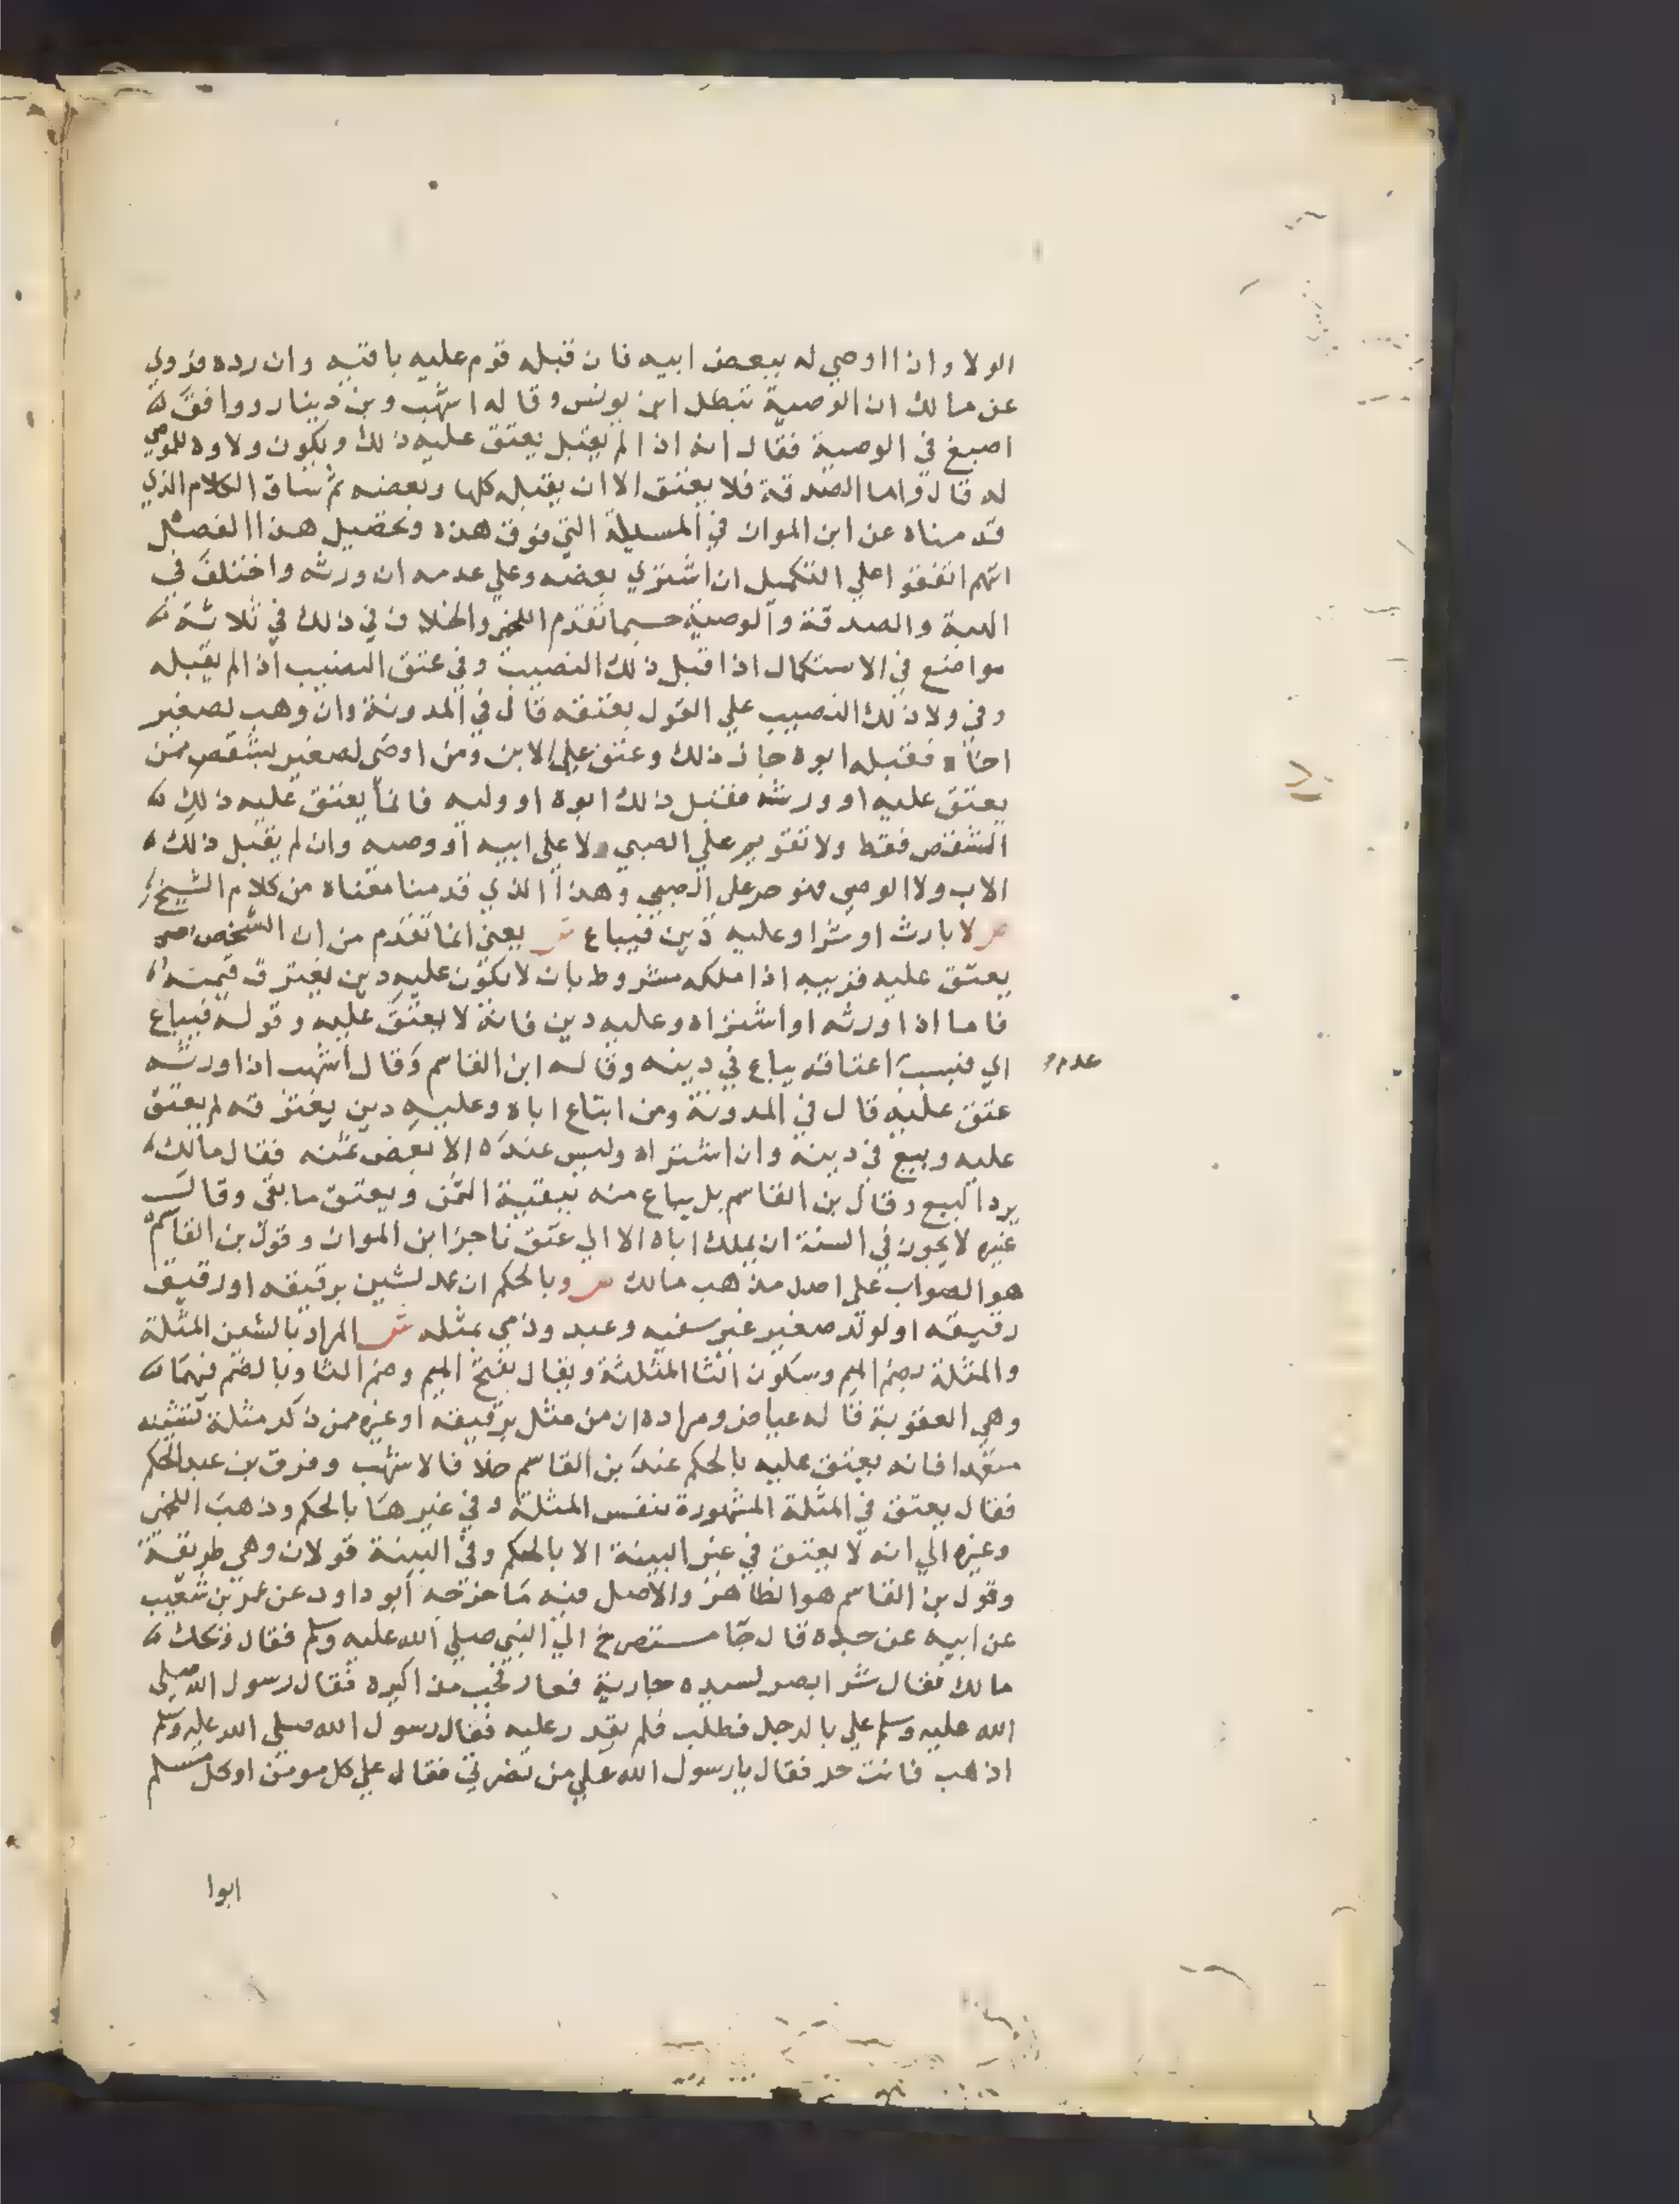 الولا وان اوصي له ببعض ابيه فان قبله قوم عليه باقيه وان رده فروي
عن مالك ان الوصية تبطل ابن يونس وقاله اشهب وبن دينار ووافق
اصبغ في الوصية فقال انه اذا لم يقبل يعتق عليه ذلك ويكون ولاوه للموصي
له قال واما الصدقة فلا يعتق الا ان يقبله كلها وبعضه ثم ساق الكلام الذي
قدمناه عن ابن المواز في المسيلة التي فوق هذه وتحصيل هذا الفصل
انهم اتفقوا علي التكميل ان اشتري بعضه وعلي عدمه ان ورثه واختلف في
الهبة والصدقة والوصية حسبما تقدم اللخمي والخلاف في ذلك في ثلاثة
مواضع في الاستكمال اذا قبل ذلك النصيب وفي عتق النصيب اذا لم يقبله
وفي ولا ذلك النصيب علي القول بعتقه قال في المدونة وان وهب لصغير
اخاه فقبله ابوه جاز ذلك وعتق علي الابن ومن اوصى لصغير بشقص ممن
يعتق عليه او ورثه فقبل ذلك ابوه او وليه فانما يعتق عليه ذلك
الشقص فقط ولا تقويم علي الصبي ولا علي ابيه او وصيه وان لم يقبل ذلك
الاب ولا الوصي فهو حر على الصبي وهذا الذي قدمنا معناه من كلام الشيخ
ص لا بارث او شرا وعليه دين فيباع ش يعني انما تقدم من ان الشخص
يعتق عليه قريبه اذا ملكه مشروط بان لا يكون عليه دين يغترق قيمته
فاما اذا ورثه او اشتراه وعليه دين فانه لا يعتق عليه وقوله فيباع
اي فبسبب اعتاقه يباع في دينه وقاله ابن القاسم وقال اشهب اذا ورثه
عدم
عتق عليه قال في المدونة ومن ابتاع اباه وعليه دين يغترقه لم يعتق
عليه وبيع في دينه وان اشتراه وليس عنده الا بعض ثمنه فقال مالك
يرد البيع وقال بن القاسم بل يباع منه ببقية الثمن ويعتق ما بقي وقال
غيره لا يجوز في السنة ان يملك اباه الا الي عتق ناجز ابن المواز وقول بن القاسم
هو الصواب علي اصل مذهب مالك ص وبالحكم ان عمد لشين برقيقه او رقيق
رقيقه او لولد صغير غير سفيه وعبد وذمي بمثله ش المراد بالشين المثلة
والمثلة بضم الميم وسكون الثا المثلثة ويقال بفتح الميم وضم الثا وبالضم فيهما
وهي العقوبة قاله عياض ومراده ان من مثل برقيقه او غيره ممن ذكر مثلة تشينه
متعمدا فانه يعتق عليه بالحكم عند بن القاسم خلافا لاشهب وفرق بن عبد الحكم
فقال يعتق في المثلة المشهورة بنفس المثلة وفي غيرها بالحكم وذهب اللخمي
وغيره الي انه لا يعتق في غير البينة الا بالحكم وفي البينة قولان وهي طريقة
وقول بن القاسم هو الظاهر والاصل فيه ما خرجه ابو داود عن عمر بن شعيب
عن ابيه عن جده قال جا مستصرخ الي النبي صلي الله عليه وسلم فقال ويحك
مالك فقال شر ابصر لسيده جارية فغار فجب مذاكيره فقال رسول الله صلي
الله عليه وسلم علي بالرجل فطلب فلم يقدر عليه فقال رسول الله صلي الله عليه وسلم
اذهب فانت حر فقال يا رسول الله علي من نصرتي فقال علي كل مومن او كل مسلم
ابوا